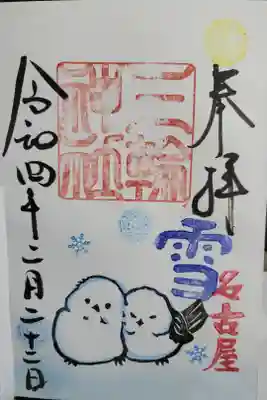 奉拝
三輪
神社
雪
名古屋
令和四年二月二十二日